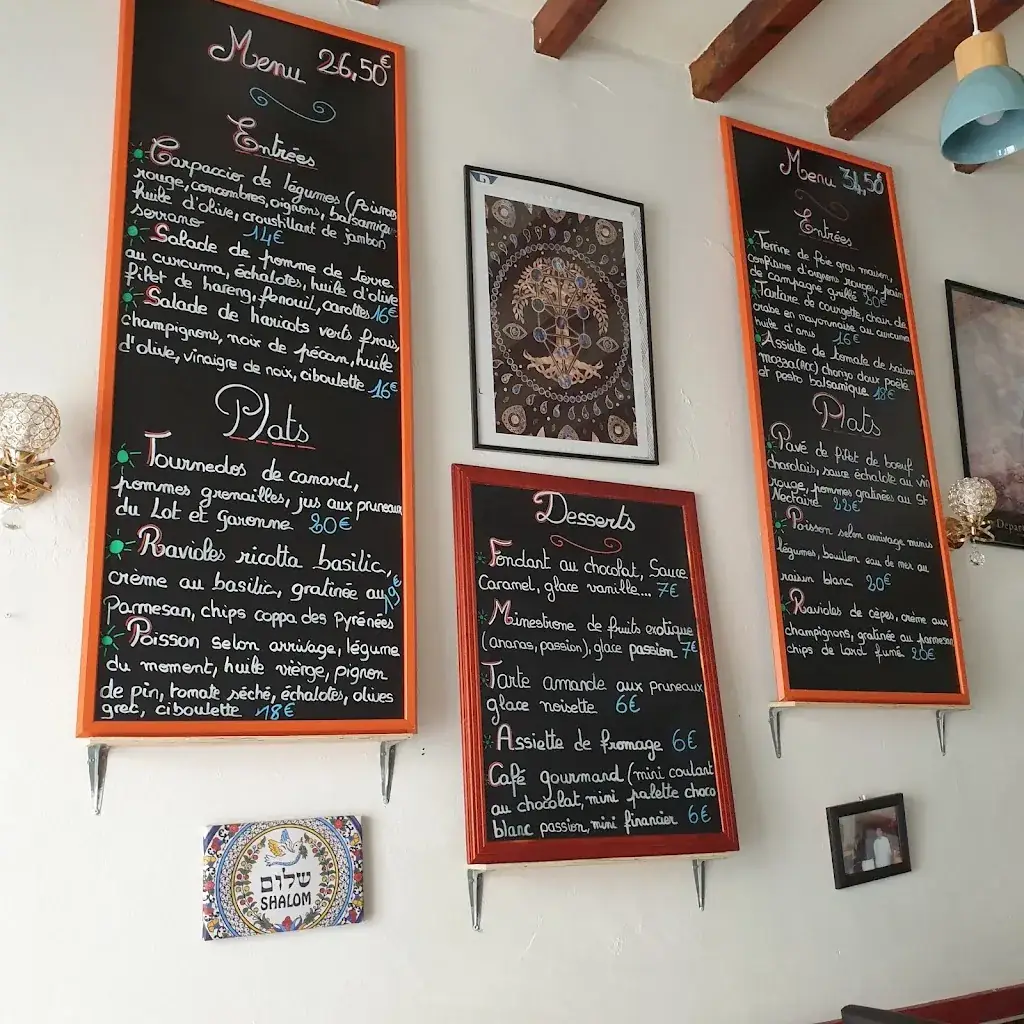 Menu 26,50€
Entrées
Carpaccio de légumes (poivrons
rouge, concombres, oignons, balsamique
huile d'olive, croustillant de jambon
serrano 14€
Salade de pomme de terre
au curcuma, échalotes, huile d'olive
filet de hareng, fenouil, carottes 16€
Salade de haricots verts frais,
champignons, noix de pécan, huile
d'olive, vinaigre de noix, ciboulette 16€
Plats
Tournedos de canard,
pommes grenailles, jus aux pruneaux
du Lot et Garonne 20€
Ravioles ricotta basilic,
crème au basilic, gratinée au
Parmesan, chips coppa des Pyrénées 19€
Poisson selon arrivage, légume
du moment, huile vierge, pignon
de pin, tomate séché, échalotes, olives
grec, ciboulette 18€
Desserts
Fondant au chocolat, Sauce
Caramel, glace vanille... 7€
Minestrone de fruits exotique
(ananas, passion), glace passion 7€
Tarte amande aux pruneaux
glace noisette 6€
Assiette de fromage 6€
Café gourmand (mini coulant
au chocolat, mini palette choco
blanc passion, mini financier 6€
Menu 34,50€
Entrées
Terrine de foie gras maison,
confiture d'oignons rouges, pain
de campagne grillé 20€
Tartare de courgette, chair de
crabe en mayonnaise au curcuma
huile d'anis 16€
Assiette de tomate de saison
mozza chorizo doux poêlé
et pesto balsamique 18€
Plats
Pavé de filet de boeuf
charolais, sauce échalote au vin
rouge, pommes gratinées au St
Nectaire 22€
Poisson selon arrivage minus
légumes, bouillon eau de mer au
raisin blanc 20€
Ravioles de cèpes, crème aux
champignons, gratinée au parmesan
chips de lard fumé 20€
שלום
SHALOM